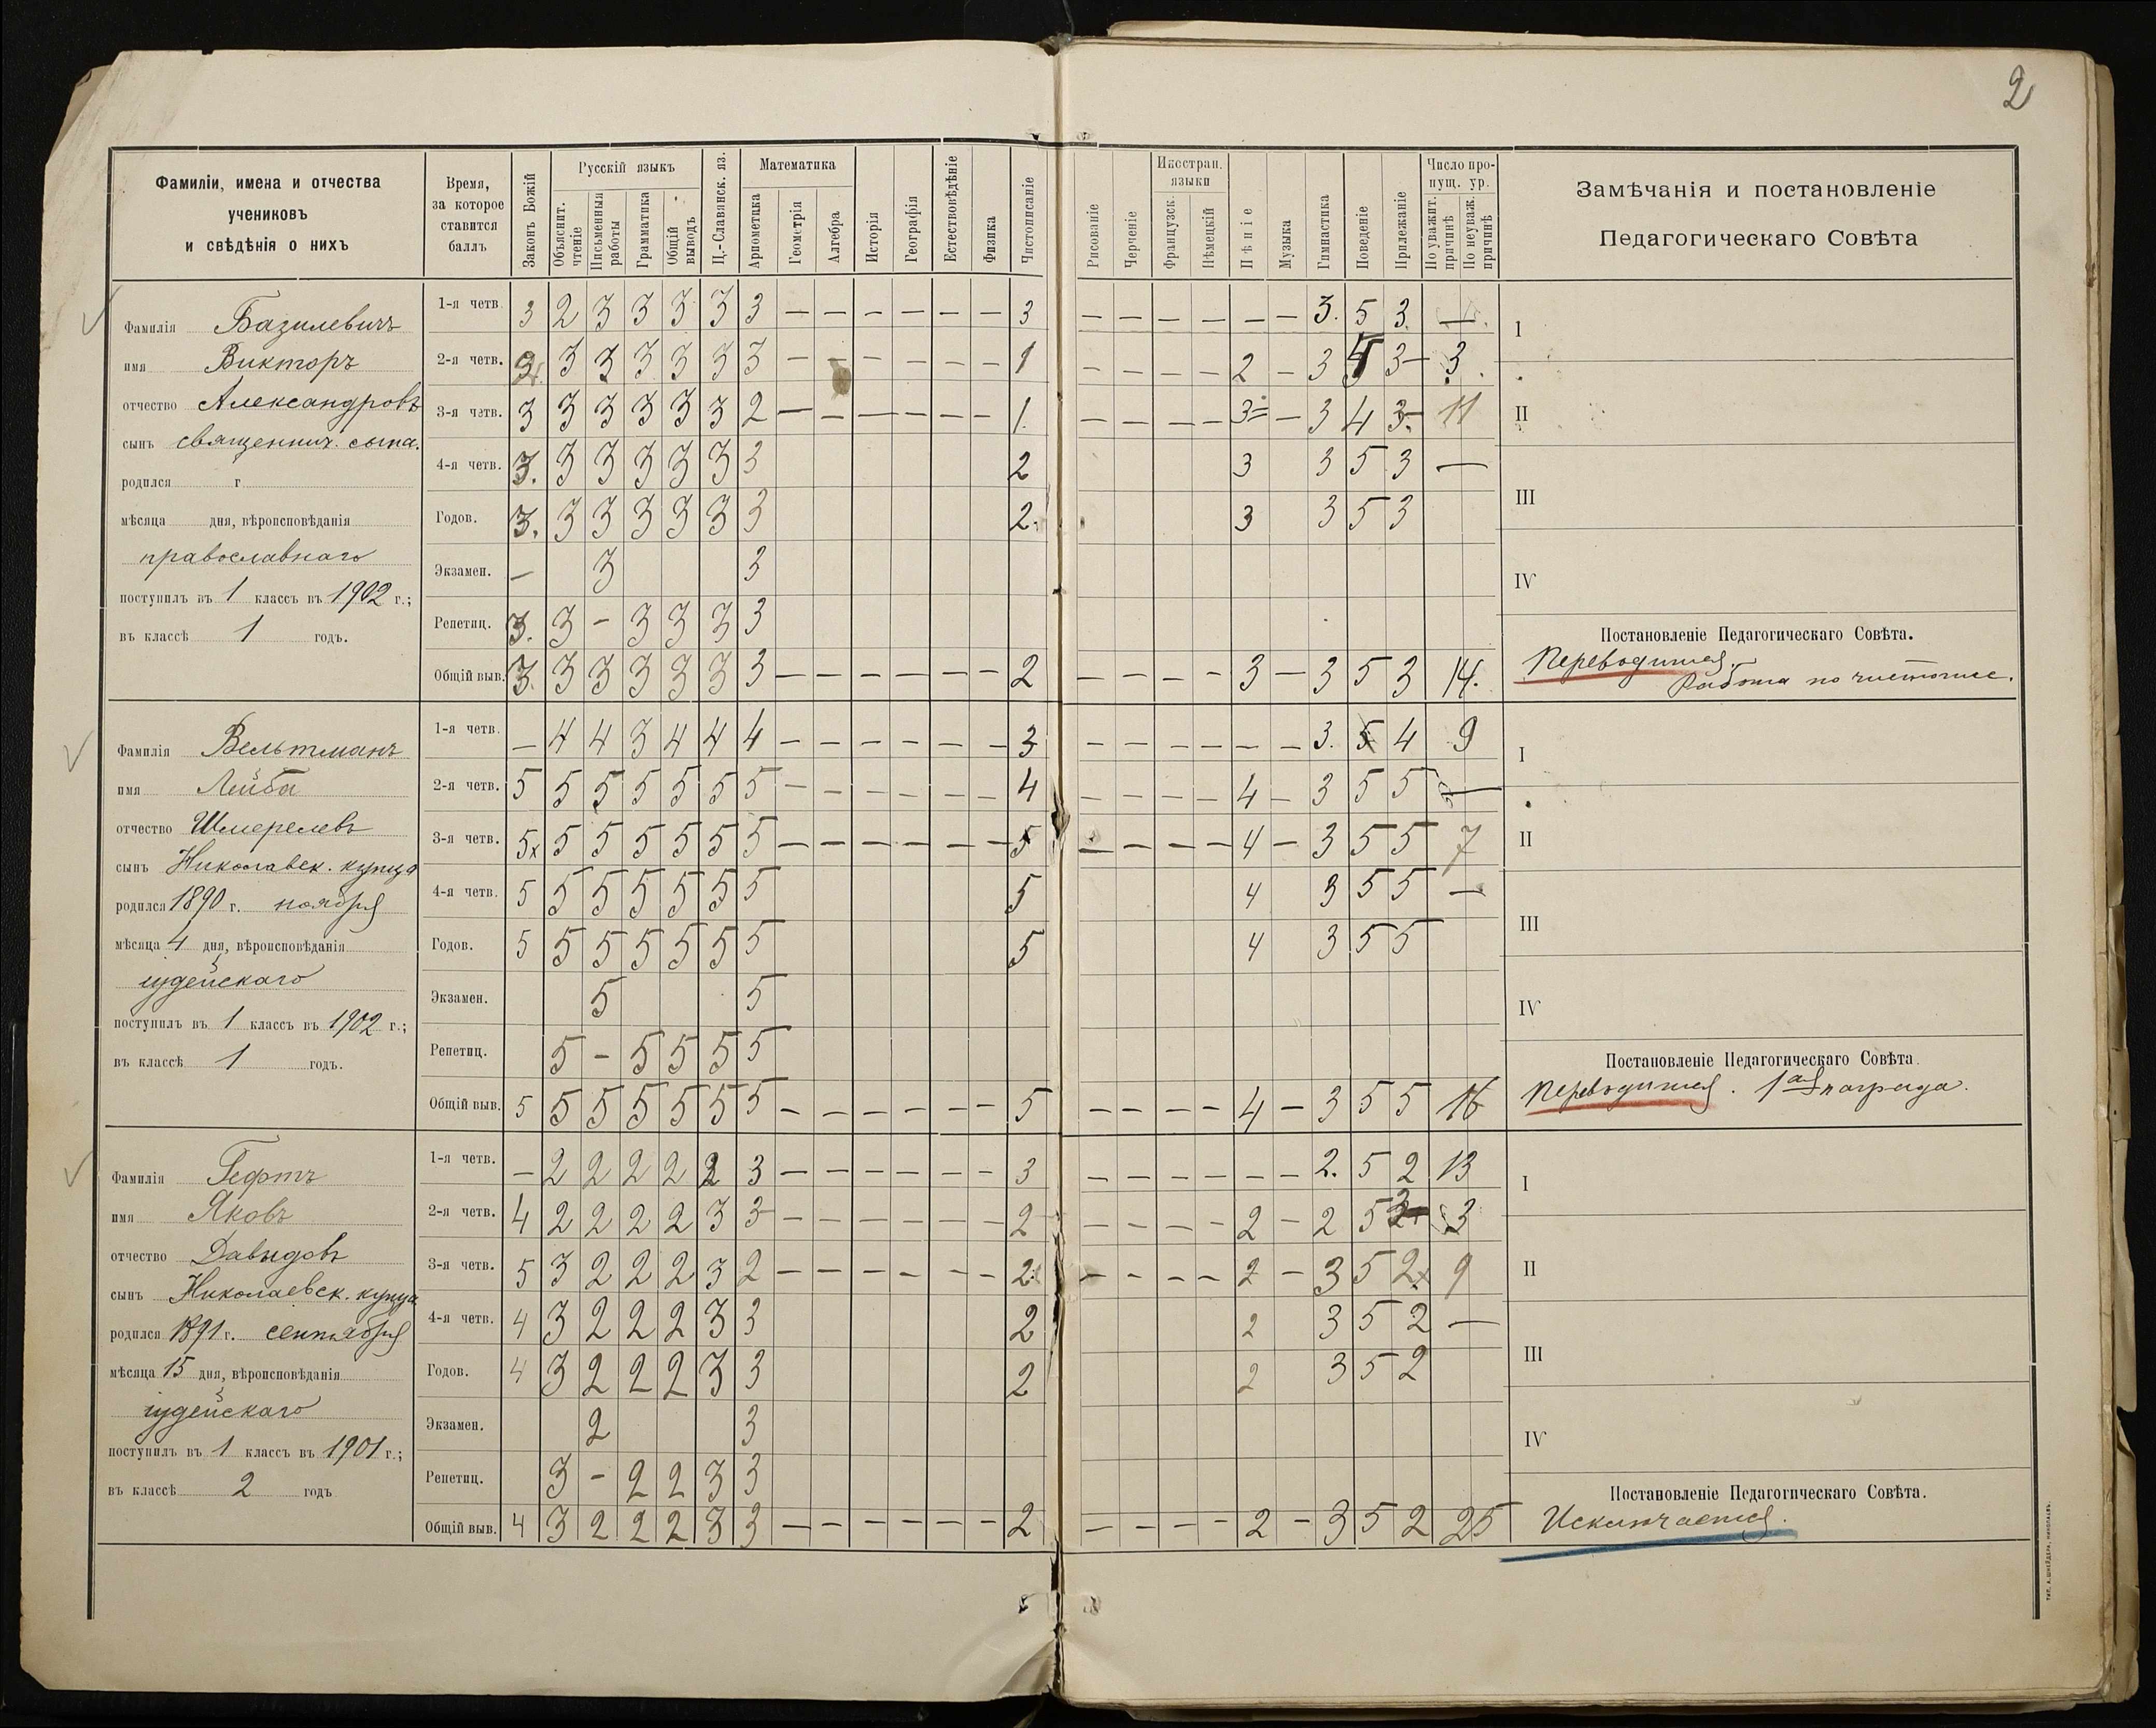 2
Фамиліи, имена и отчества
учениковъ
и свѣдѣнія о нихъ
Время,
за которое
ставится
баллъ
Законъ Божій
Русскій языкъ
Объяснит. чтеніе
Письменныя работы
Грамматика
Общій выводъ
Ц.-Славянск. яз.
Математика
Ариѳметика
Геометрія
Алгебра
Исторія
Географія
Естествовѣдѣніе
Физика
Чистописаніе
Рисованіе
Черченіе
Иностран. языки
Французск.
Нѣмецкій
Пѣніе
Музыка
Гимнастика
Поведеніе
Прилежаніе
Число пропущ. ур.
По уважит. причинѣ
По неуваж. причинѣ
Замѣчанія и постановленіе
Педагогическаго Совѣта
Фамилія Базилевичъ
имя Викторъ
отчество Александровъ
сынъ священнич. сына.
родился г
мѣсяца дня, вѣроисповѣданія
православнаго
поступилъ въ 1 классъ въ 1902 г.;
въ классѣ 1 годъ.
1-я четв. 3 2 3 3 3 3 3 — — — — — — 3 — — — — — — 3. 5 3. —
2-я четв. 3 3 3 3 3 3 3 — — — — — — 1 — — — — 2 — 3 3— 3.
3-я четв. 3 3 3 3 3 3 2 — — — — — — 1. — — — — 3= — 3 4 3- 11
4-я четв. 3. 3 3 3 3 3 3 2 3 3 5 3 —
Годов. 3. 3 3 3 3 3 3 2. 3 3 5 3
Экзамен. — 3 3
Репетиц. 3. 3 - 3 3 3 3
Общій выв. 3. 3 3 3 3 3 3 — — — — — — 2 — — — — 3 — 3 5 3 14.
I
II
III
IV
Постановленіе Педагогическаго Совѣта.
Переводится.
Работа по чистопис.
Фамилія Вельтманъ
имя Лейба
отчество Шмерелевъ
сынъ Николаевск. купца
родился 1890 г. ноября
мѣсяца 4 дня, вѣроисповѣданія
іудейскаго
поступилъ въ 1 классъ въ 1902 г.;
въ классѣ 1 годъ.
1-я четв. — 4 4 3 4 4 4 — — — — — — 3 — — — — — — 3. 5 4 9
2-я четв. 5 5 5 5 5 5 5 — — — — — — 4 — — — — 4 — 3 5 5 —
3-я четв. 5x 5 5 5 5 5 5 — — — — — — 5 — — — — 4 — 3 5 5 7
4-я четв. 5 5 5 5 5 5 5 5 4 3 5 5 —
Годов. 5 5 5 5 5 5 5 5 4 3 5 5
Экзамен. 5 5
Репетиц. 5 - 5 5 5 5
Общій выв. 5 5 5 5 5 5 5 — — — — — — 5 — — — — 4 — 3 5 5 16
I
II
III
IV
Постановленіе Педагогическаго Совѣта.
Переводится. 1ая награда.
Фамилія Гефтъ
имя Яковъ
отчество Давыдовъ
сынъ Николаевск. купца
родился 1891 г. сентября
мѣсяца 15 дня, вѣроисповѣданія
іудейскаго
поступилъ въ 1 классъ въ 1901 г.;
въ классѣ 2 годъ
1-я четв. — 2 2 2 2 2 3 — — — — — — 3 — — — — — — 2. 5 2 13
2-я четв. 4 2 2 2 2 3 3 — — — — — — 2 — — — — 2 — 2 5 3 3
3-я четв. 5 3 2 2 2 3 2 — — — — — — 2 — — — — 2 — 3 5 2x 9
4-я четв. 4 3 2 2 2 3 3 2 2 3 5 2 —
Годов. 4 3 2 2 2 3 3 2 2 3 5 2
Экзамен. 2 3
Репетиц. 3 - 2 2 3 3
Общій выв. 4 3 2 2 2 3 3 — — — — — — 2 — — — — 2 — 3 5 2 25
I
II
III
IV
Постановленіе Педагогическаго Совѣта.
Исключается.
ТИП. А. ШНЕЙДЕРА, НИКОЛАЕВЪ.